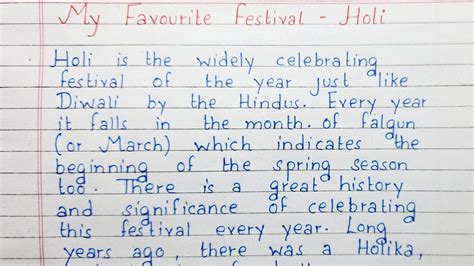 My Favourite Festival - Holi
Holi is the widely celebrating
festival of the year just like
Diwali by the Hindus. Every year
it falls in the month of falgun
(or March) which indicates the
beginning of the spring season
too. There is a great history
and significance of celebrating
this festival every year. Long
years ago, there was a Holika,